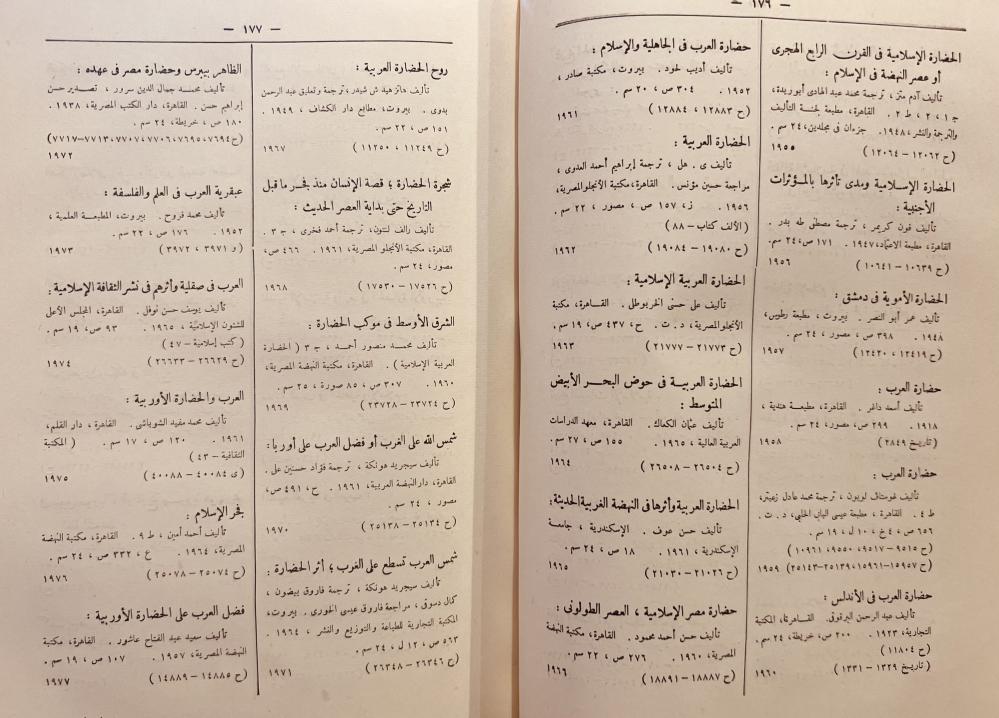 — ١٧٩ —
الحضارة الإسلامية فى القرن الرابع الهجرى
أو عصر النهضة فى الإسلام :
تأليف آدم متز ، ترجمة محمد عبد الهادى أبو ريدة ،
ج ١ ، ٢ ، ط ٢ . القاهرة ، مطبعة لجنة التأليف
والترجمة والنشر ، ١٩٤٨ . جزءان فى مجلدين ، ٢٤ سم .
( ح ١٢٠٦٢ – ١٢٠٦٤ ) ١٩٥٥
الحضارة الإسلامية ومدى تأثرها بالمؤثرات
الأجنبية :
تأليف فون كريمر ، ترجمة مصطفى طه بدر .
القاهرة ، مطبعة الاعتماد ، ١٩٤٧ . ١٧١ ص ، ٢٤ سم .
( ح ١٠٦٣٩ – ١٠٦٤١ ) ١٩٥٦
الحضارة الأموية فى دمشق :
تأليف عمر أبو النصر . بيروت ، مطبعة رطوس ،
١٩٤٨ . ٣٩٨ ص ، مصور ، ٢٤ سم .
( ح ١٢٤١٩ ، ١٢٤٢٠ ) ١٩٥٧
حضارة العرب :
تأليف أسعد داغر . القاهرة ، مطبعة هندية ،
١٩١٨ . ٢٩٩ ص ، مصور ، ٢٤ سم .
( تاريخ ٢٨٤٩ ) ١٩٥٨
حضارة العرب :
تأليف غوستاف لوبون ، ترجمة محمد عادل زعيتر ،
ط ٤ . القاهرة ، مطبعة عيسى البابى الحلبى ، د . ت .
٦٥٦ ص ، ٤ خ ، ١٠ ل ، ١٩ سم .
( ح ٩٥١٥ – ٩٥١٧ ، ٩٥٥٠ ، ١٠٩٦١ )
( ح ١٥٩٥٧ – ١٥٩٦١ ، ٢٥١٣٩ – ٢٥١٤٣ ) ١٩٥٩
حضارة العرب فى الأندلس :
تأليف عبد الرحمن البرقوقى . القاهرة ، المكتبة
التجارية ، ١٩٢٣ . ٢٠٠ ص ، خريطة ، ٢٤ سم .
( ح ١١٨٠٤ )
( تاريخ ١٣٢٩ – ١٣٣١ ) ١٩٦٠
حضارة العرب فى الجاهلية والإسلام :
تأليف أديب لحود . بيروت ، مكتبة صادر ،
١٩٥٢ . ٣٠٤ ص ، ٢٠ سم .
( ح ١٢٨٨٣ ، ١٢٨٨٤ ) ١٩٦١
الحضارة العربية :
تأليف ى . هل ، ترجمة إبراهيم أحمد العدوى ،
مراجعة حسين مؤنس . القاهرة ، مكتبة الأنجلو المصرية ،
١٩٥٦ . ز ، ١٥٧ ص ، مصور ، ٢٢ سم .
( الألف كتاب – ٨٨ )
( ح ١٩٠٨٠ – ١٩٠٨٤ ) ١٩٦٢
الحضارة العربية الإسلامية :
تأليف على حسنى الخربوطلى . القاهرة ، مكتبة
الأنجلو المصرية ، د . ت . ح ، ٤٣٧ ص ، ١٩ سم .
( ح ٢١٧٧٣ – ٢١٧٧٧ ) ١٩٦٣
الحضارة العربية فى حوض البحر الأبيض
المتوسط :
تأليف عثمان الكعاك . القاهرة ، معهد الدراسات
العربية العالية ، ١٩٦٥ . ١٥٥ ص ، ٢٧ سم .
( ح ٢٦٥٠٤ – ٢٦٥٠٨ ) ١٩٦٤
الحضارة العربية وأثرها فى النهضة الغربية الحديثة :
تأليف حسن عوف . الإسكندرية ، جامعة
الإسكندرية ، ١٩٦١ . ١٨ ص ، ٢٤ سم .
( ح ٢١٠٢٦ – ٢١٠٣٠ ) ١٩٦٥
حضارة مصر الإسلامية ، العصر الطولونى :
تأليف حسن أحمد محمود . القاهرة ، مكتبة النهضة
المصرية ، ١٩٦٠ . ٢٧٦ ص ، ٢٢ سم .
( ح ١٨٨٨٧ – ١٨٨٩١ ) ١٩٦٦
— ١٧٧ —
روح الحضارة العربية :
تأليف هانز هيد ش شيدر ، ترجمة وتعليق عبد الرحمن
بدوى . بيروت ، مطابع دار الكشاف ، ١٩٤٩ .
١٥١ ص ، ٢٢ سم .
( ح ١١٢٤٩ ، ١١٢٥٠ ) ١٩٦٧
شجرة الحضارة ؛ قصة الإنسان منذ فجر ما قبل
التاريخ حتى بداية العصر الحديث :
تأليف رالف لنتون ، ترجمة أحمد فخرى ، ج ٣ .
القاهرة ، مكتبة الأنجلو المصرية ، ١٩٦١ . ٤٦٦ ص ،
مصور ، ٢٤ سم .
( ح ١٧٥٢٦ – ١٧٥٣٠ ) ١٩٦٨
الشرق الأوسط فى موكب الحضارة :
تأليف محمد منصور أحمد ، ج ٣ ( الحضارة
العربية الإسلامية ) . القاهرة ، مكتبة النهضة المصرية ،
١٩٦٠ . ٣٠٧ ص ، ٨٥ صورة ، ٢٥ سم .
( ح ٢٣٧٢٤ – ٢٣٧٢٨ ) ١٩٦٩
شمس الله على الغرب أو فضل العرب على أوربا :
تأليف سيجريد هونكة ، ترجمة فؤاد حسنين على .
القاهرة ، دار النهضة العربية ، ١٩٦١ . ح ، ٤٩١ ص ،
مصور ، ٢٤ سم .
( ح ٢٥١٣٤ – ٢٥١٣٨ ) ١٩٧٠
شمس العرب تسطع على الغرب ؛ أثر الحضارة :
تأليف سيجريد هونكة ، ترجمة فاروق بيضون ،
كمال دسوقى ، مراجعة فاروق عيسى الخورى . بيروت ،
المكتبة التجارية للطباعة والتوزيع والنشر ، ١٩٦٤ .
٥٦٣ ص ، ١٢ ل ، ٢٤ سم .
( ح ٢٦٣٤٦ – ٢٦٣٤٨ ) ١٩٧١
الظاهر بيبرس وحضارة مصر فى عهده :
تأليف محمد جمال الدين سرور ، تصدير حسن
إبراهيم حسن . القاهرة ، دار الكتب المصرية ، ١٩٣٨ .
١٨٠ ص ، خريطة ، ٢٤ سم .
( ح ٧٦٩٤ ، ٧٦٩٥ ، ٧٧٠٦ ، ٧٧٠٧ ، ٧٧١٣ – ٧٧١٧ )
١٩٧٢
عبقرية العرب فى العلم والفلسفة :
تأليف محمد فروخ . بيروت ، المطبعة العلمية ،
١٩٥٢ . ١٧٦ ص ، ٢٢ سم .
( و ٣٩٧١ ، ٣٩٧٢ ) ١٩٧٣
العرب فى صقلية وأثرهم فى نشر الثقافة الإسلامية :
تأليف يوسف حسن نوفل . القاهرة ، المجلس الأعلى
للشئون الإسلامية ، ١٩٦٥ . ٩٣ ص ، ١٩ سم .
( كتب إسلامية – ٤٧ )
( ح ٢٦٦٢٩ – ٢٦٦٣٣ ) ١٩٧٤
العرب والحضارة الأوربية :
تأليف محمد مفيد الشوباشى . القاهرة ، دار القلم ،
١٩٦١ . ١٢٠ ص ، ١٧ سم . ( المكتبة
الثقافية – ٤٣ )
( ى ٤٠٠٨٤ – ٤٠٠٨٨ ) ١٩٧٥
فجر الإسلام :
تأليف أحمد أمين ، ط ٩ . القاهرة ، مكتبة النهضة
المصرية ، ١٩٦٤ . ع ، ٣٣٢ ص ، ٢٤ سم .
( ح ٢٥٠٧٤ – ٢٥٠٧٨ ) ١٩٧٦
فضل العرب على الحضارة الأوربية :
تأليف سعيد عبد الفتاح عاشور . القاهرة ، مكتبة
النهضة المصرية ، ١٩٥٧ . ١٠٧ ص ، ١٩ سم .
( ح ١٤٨٨٥ – ١٤٨٨٩ ) ١٩٧٧